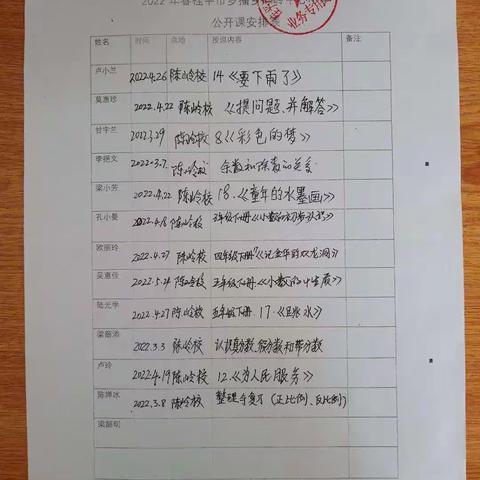 2022年春桂平市罗播乡
业务专用
公开课安排表
姓名 时间 地点 授课内容 备注
卢小兰 2022.4.26 陈岭校 14《要下雨了》
莫惠珍 2022.4.22 陈岭校 《提问题、并解答》
甘宇兰 2022.3.29 陈岭校 8《彩色的梦》
李艳文 2022.3.7. 陈岭校 余数和除数的关系
梁小芳 2022.4.22 陈岭校 18.《童年的水墨画》
孔小曼 2022.4.18 陈岭校 三年级下册《小数的初步认识》
欧丽玲 2022.4.27 陈岭校 四年级下册17《记金华的双龙洞》
吴惠佳 2022.5.24 陈岭校 五年级下册《小数的性质》
陆元学 2022.4.27 陈岭校 五年级下册.17.《跳水》
梁韶添 2022.3.3 陈岭校 认识真分数、假分数和带分数
卢玲 2022.4.19 陈岭校 12.《为人民服务》
陈婵冰 2022.3.8 陈岭校 整理与复习(正比例、反比例)
梁韶旬